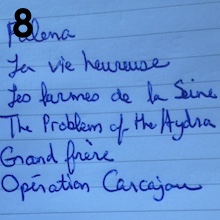 8
Palena
La vie heureuse
Les larmes de la Seine
The Problem of the Hydra
Grand frère
Opération Carcajou